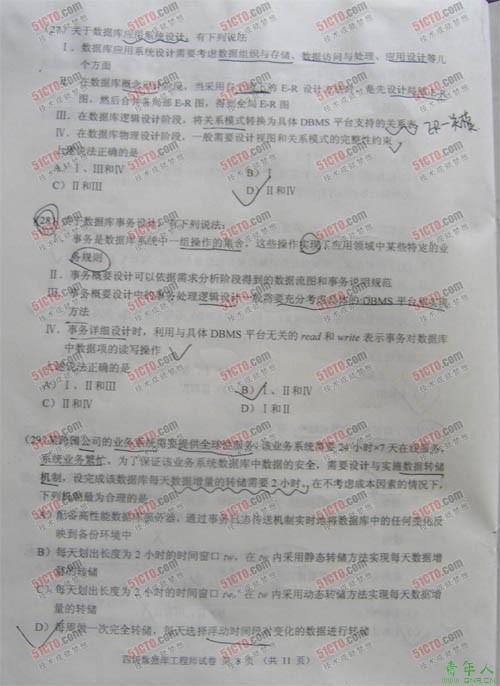 (27) 关于数据库应用系统设计，有下列说法
Ⅰ．数据库应用系统设计需要考虑数据组织与存储、数据访问与处理、应用设计等几
个方面
Ⅱ．在数据库概念设计阶段，当采用自 的 E-R 设计 时，是先设计局部E-R
图，然后合并各局部 E-R 图，得到全局 E-R 图
Ⅲ．在数据库逻辑设计阶段，将关系模式转换为具体 DBMS 平台支持的关系表
Ⅳ．在数据库物理设计阶段，一般需要设计视图和关系模式的完整性约束
上述说法正确的是
A）Ⅰ、Ⅲ和Ⅳ B）Ⅰ
C）Ⅱ和Ⅲ D）Ⅱ和Ⅳ
(28) 关于数据库事务设计，有下列说法：
事务是数据库系统中一组操作的集合，这些操作实现了应用领域中某些特定的业
务规则
Ⅱ．事务概要设计可以依据需求分析阶段得到的数据流图和事务说明规范
Ⅲ．事务概要设计中的事务处理逻辑设计一般需要充分考虑具体的 DBMS 平台和实现
方法
Ⅳ．事务详细设计时，利用与具体 DBMS 平台无关的 read 和 write 表示事务对数据库
中数据项的读写操作
上述说法正确的是
A）Ⅰ、Ⅱ和Ⅲ B）Ⅰ、Ⅱ和Ⅳ
C）Ⅱ和Ⅳ D）Ⅰ和Ⅱ
(29) 某跨国公司的业务系统需要提供全球性服务，该业务系统需要 24 小时×7 天在线服务，
系统业务繁忙。为了保证该业务系统数据库中数据的安全，需要设计与实施数据转储
机制，设完成该数据库每天数据增量的转储需要 2 小时，在不考虑成本因素的情况下，
下列机制最为合理的是
A）配备高性能数据库服务器，通过事务日志传送机制实时地将数据库中的任何变化反
映到备份环境中
B）每天划出长度为 2 小时的时间窗口 tw，在 tw 内采用静态转储方法实现每天数据增
量的转储
C）每天划出长度为 2 小时的时间窗口 tw，在 tw 内采用动态转储方法实现每天数据增
量的转储
D）每周做一次完全转储，每天选择浮动时间段对变化的数据进行转储
四级数据库工程师试卷 第 8 页 （共 11 页）
51CTO.com
技术成就梦想
青年人
WWW.QNR.CN